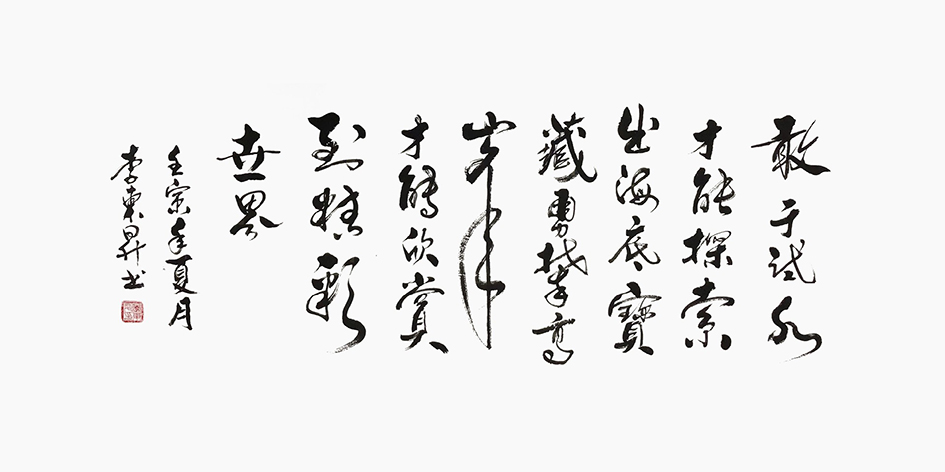 敢于试水
才能探索
出海底寶
藏勇攀高
峯
才能欣賞
到精彩
世界
壬寅年夏月
李東昇书